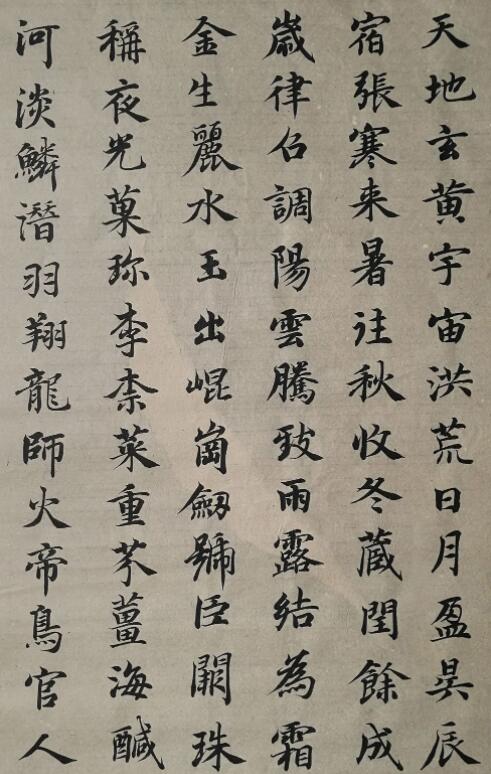 天地玄黄宇宙洪荒日月盈昃辰
宿張寒来暑往秋收冬蔵閏餘成
歳律召調陽雲騰致雨露結為霜
金生麗水玉出崐崗劔號臣闕珠
稱夜光菓珎李柰菜重芥薑海醎
河淡鱗潛羽翔龍師火帝鳥官人